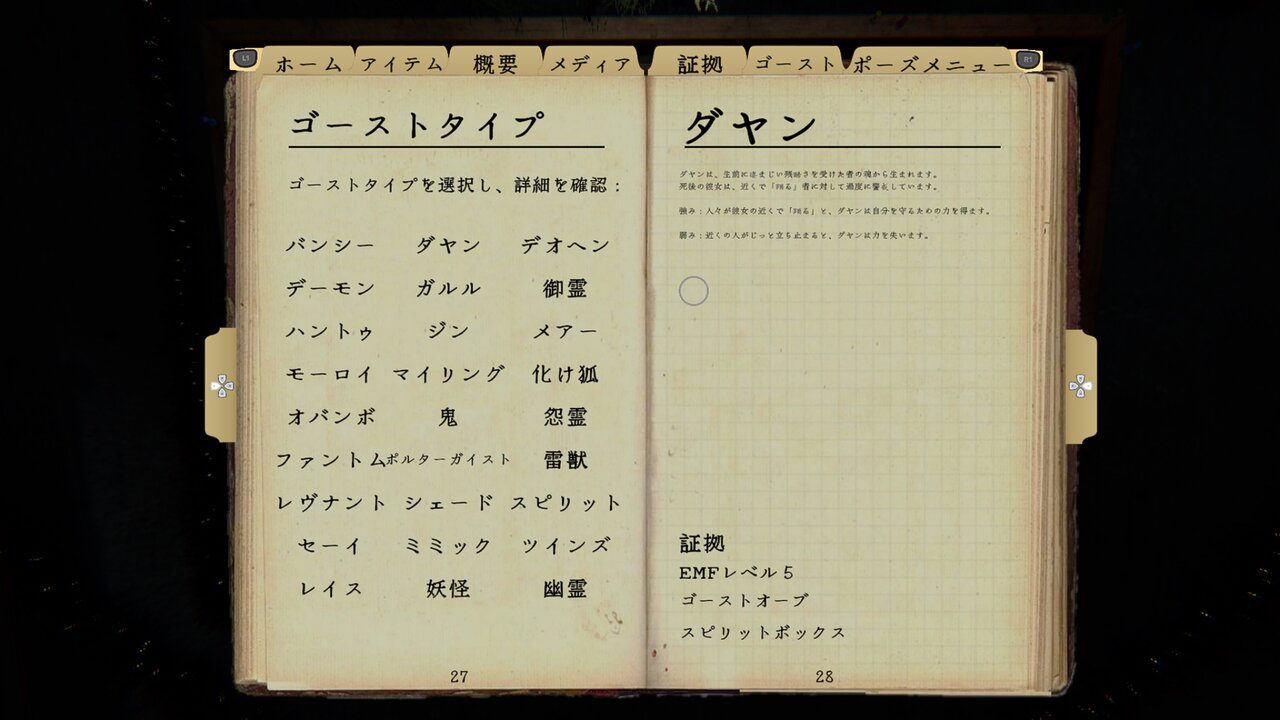 L1
ホーム アイテム 概要 メディア 証拠 ゴースト ポーズメニュー
R1
ゴーストタイプ
ゴーストタイプを選択し、詳細を確認：
バンシー ダヤン デオヘン
デーモン ガルル 御霊
ハントゥ ジン メアー
モーロイ マイリング 化け狐
オバンボ 鬼 怨霊
ファントム ポルターガイスト 雷獣
レヴナント シェード スピリット
セーイ ミミック ツインズ
レイス 妖怪 幽霊
27
ダヤン
ダヤンは、生前に凄まじい残酷さを受けた者の魂から生まれます。
死後の彼女は、近くで「踊る」者に対して過度に警戒しています。
強み：人々が彼女の近くで「踊る」と、ダヤンは自分を守るための力を得ます。
弱み：近くの人がじっと立ち止まると、ダヤンは力を失います。
証拠
EMFレベル５
ゴーストオーブ
スピリットボックス
28